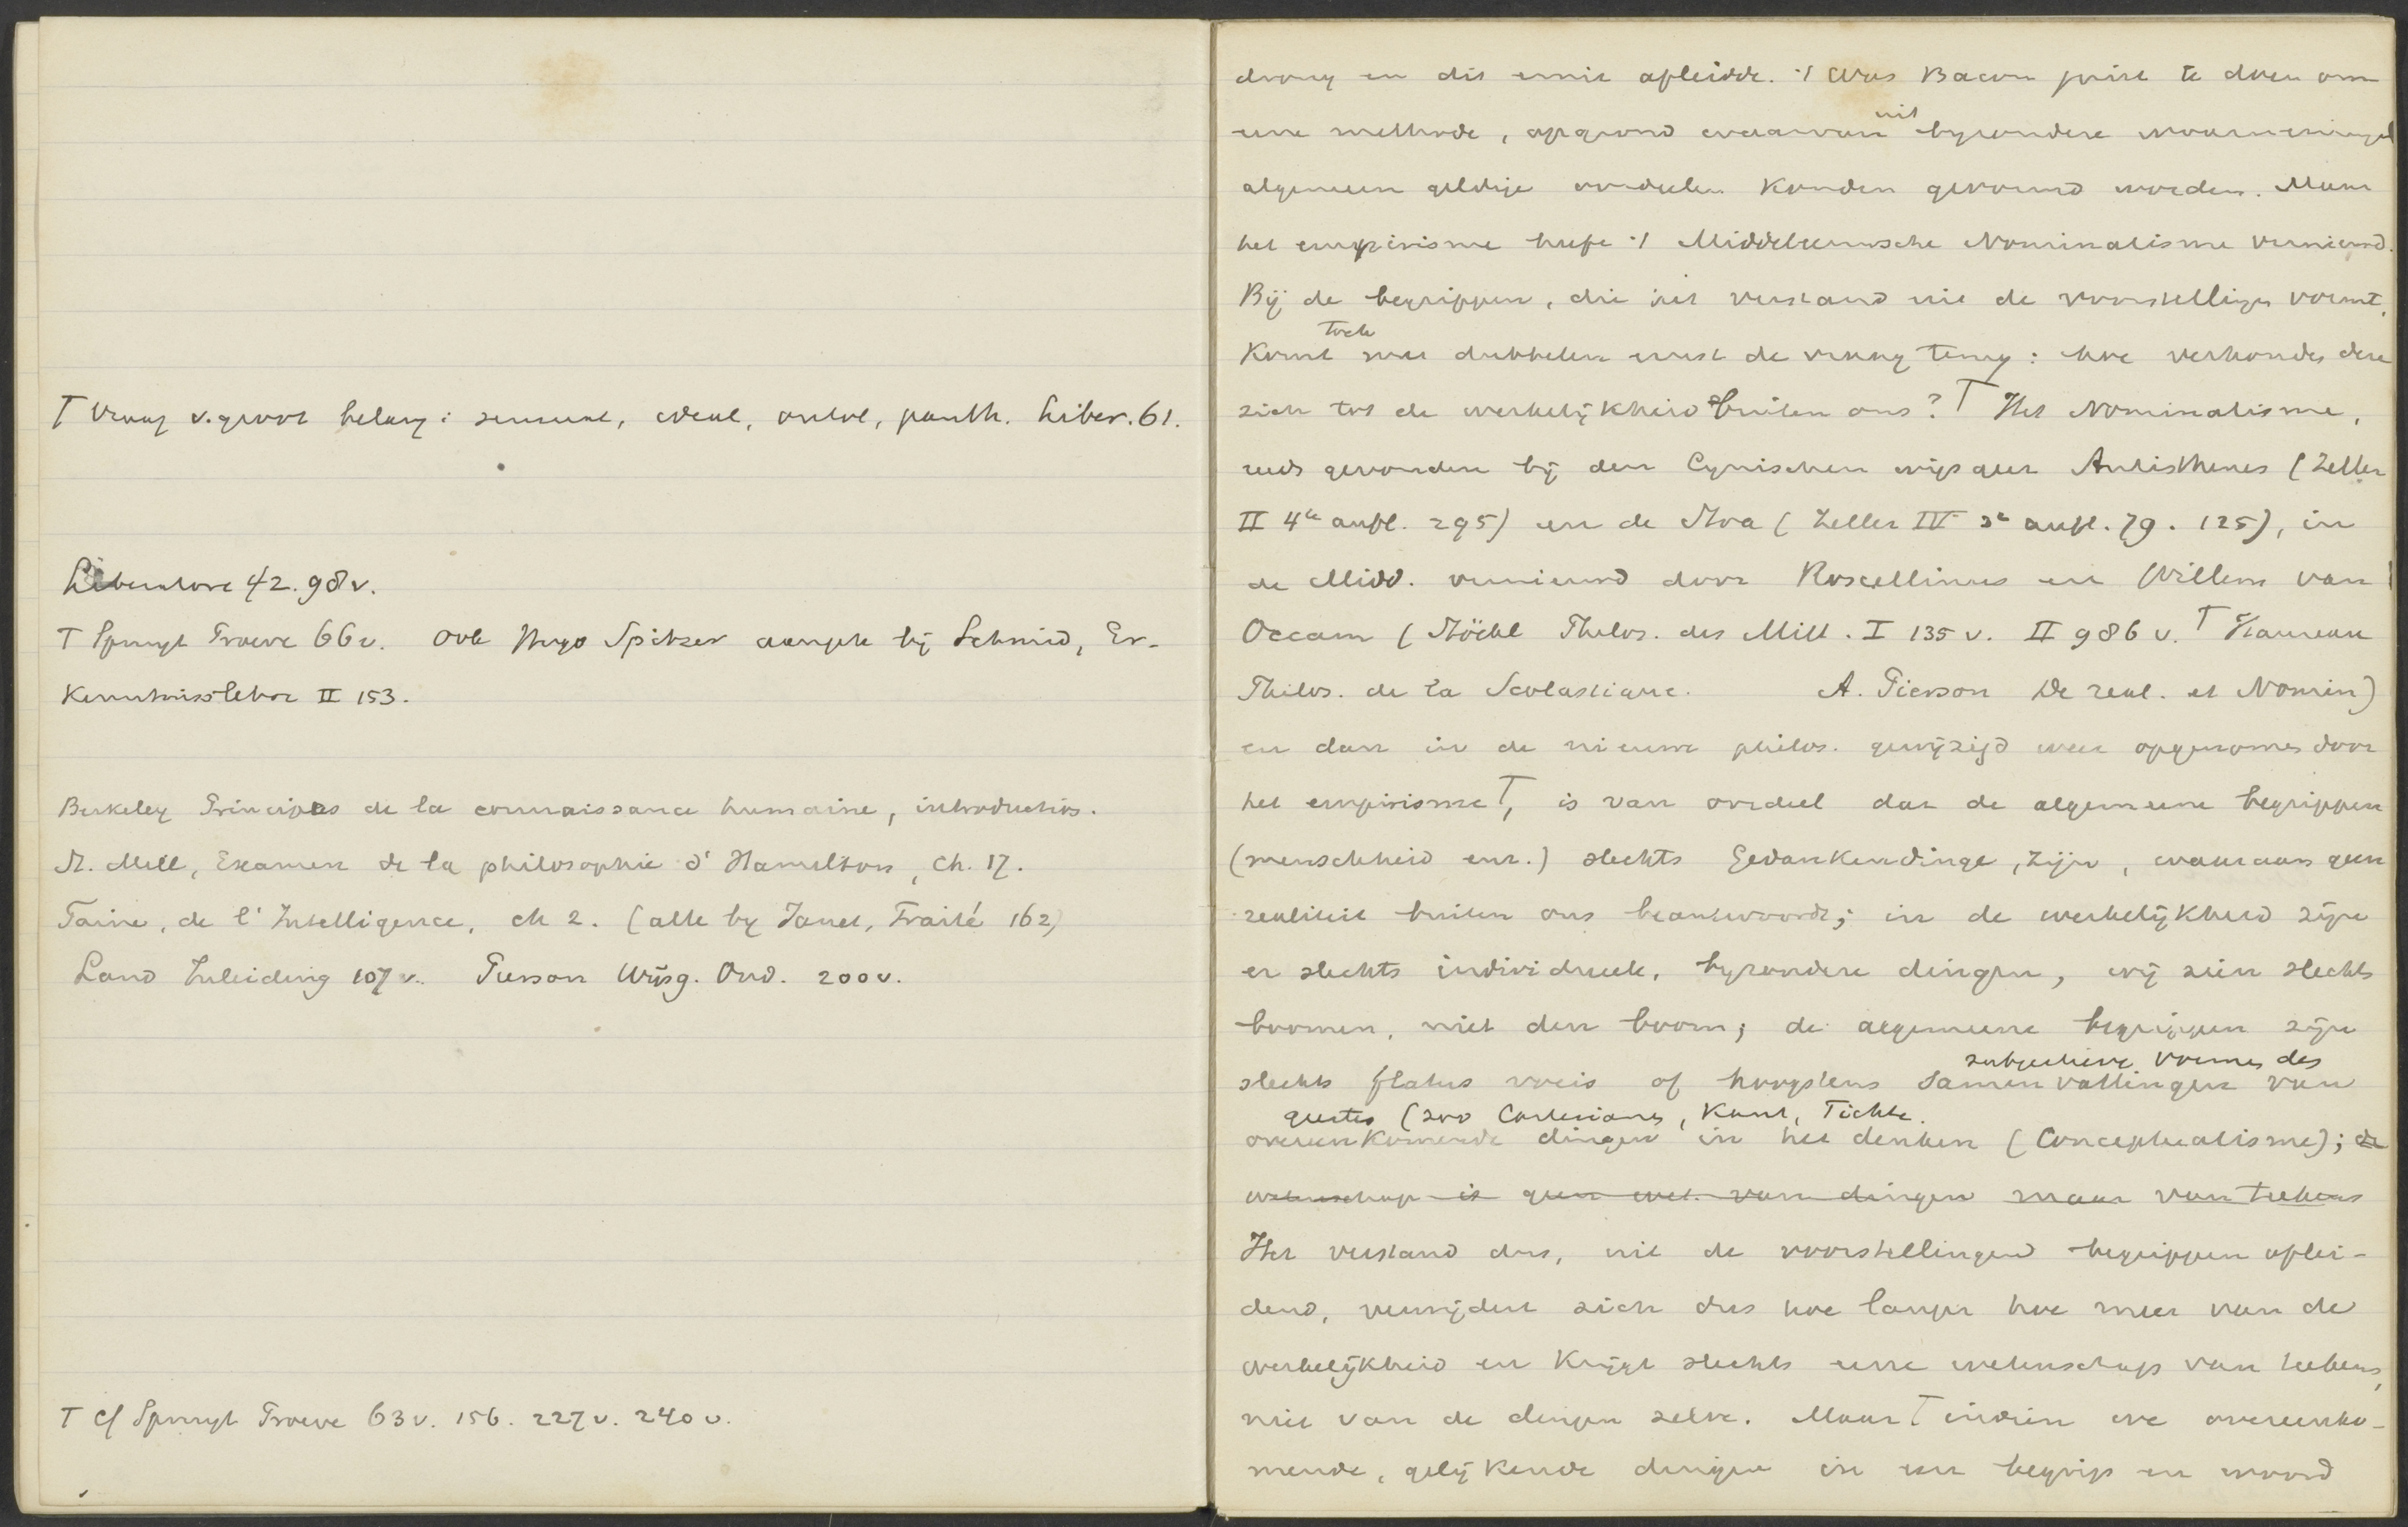 T Vraag v. groot belang: sensual, ideal, ontol, panth. Liber. 61.
Liberatore 42. 98 v.
T Spruyt Proeve 66 v. Ook Hugo Spitzer aangeh bij Schmid, Er-
kenntnisslehre II 153.
Berkeley Principes de la connaissance humaine, introduction.
St. Mill, Examen de la philosophie d' Hamilton, ch. 17.
Taine, de l' Intelligence, ch 2. (alle by Janet, Traité 162)
Land Inleiding 107 v. Pierson Wijsg. Ond. 200 v.
T cf Spruyt Proeve 63 v. 156. 227 v. 240 v.
drong en dis eruit afleidde. 't Was Bacon juist te doen om
eene methode, op grond waarvan uit byzondere waarnemingen
algemeen geldige oordeelen konden gevormd worden. Maar
het empirisme heeft 't Middeleeuwsche Nominalisme vernieuwd.
Bij de begrippen, die het verstand uit de voorstellingen vormt,
komt toch met dubbelen ernst de vraag terug: hoe verhouden deze
zich tot de werkelijkheid buiten ons? T Het Nominalisme,
reeds gevonden bij den Cynischen wijsgeer Antisthenes (Zeller
II 4te aufl. 295) en de Stoa (Zeller IV 3e aufl. 79. 125), in
de Midd. vernieuwd door Roscellinus en Willem van
Occam (Stöckl Philos. des Mitt. I 135 v. II 986 v. T Haureau
Philos. de la Scolastique. A. Pierson De real. et Nomin)
en dan in de nieuwe philos. gewijzigd weer opgenomen door
het empirisme T, is van oordeel dat de algemeene begrippen
(menschheid enz.) slechts Gedankendinge, zijn, waaraan geen
realiteit buiten ons beantwoordt; in de werkelijkheid zijn
er slechts individueele, byzondere dingen, wij zien slechts
boomen, niet den boom; de algemeene begrippen zijn
slechts flatus vocis of hoogstens samenvattingen van
subjectieve vormen des
geestes (zoo Cartesianen, Kant, Fichte.
overeenkomende dingen in het denken (Conceptualisme); de
wetenschap is geen wet. van dingen maar van teekens
Het verstand dus, uit de voorstellingen begrippen aflei-
dend, verwijdert zich dus hoe langer hoe meer van de
werkelijkheid en krijgt slechts eene wetenschap van teekens,
niet van de dingen zelve. Maar T indien we overeenko-
mende, gelijkende dingen in een begrip en woord